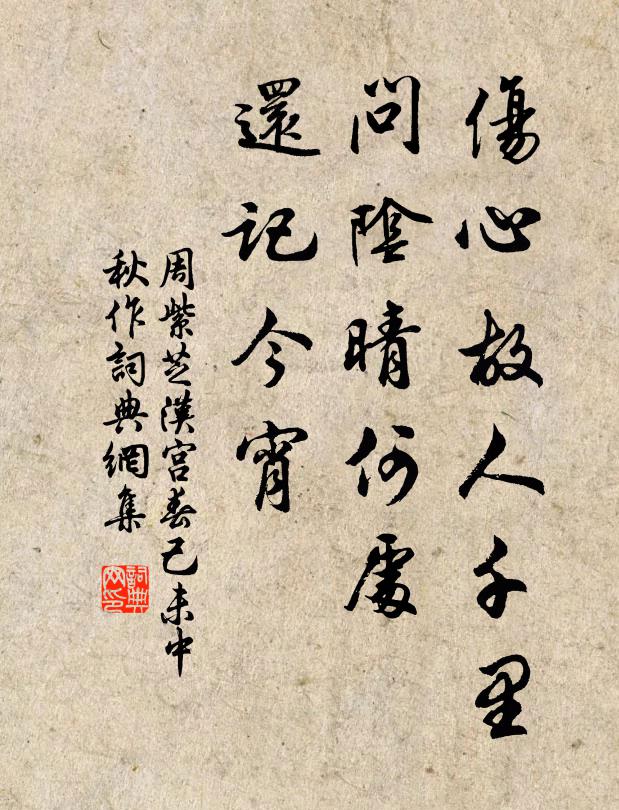 傷心故人千里
問陰晴何處
還記今宵
周紫芝漢宮春己未中
秋作詞典網集
詞典網印